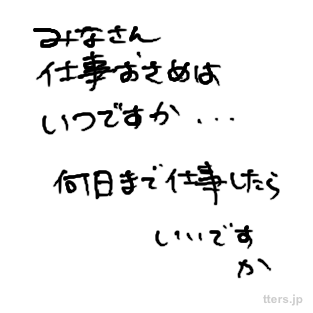 みなさん
仕事おさめは
いつですか...
何日まで仕事したら
いいです
か
tters.jp